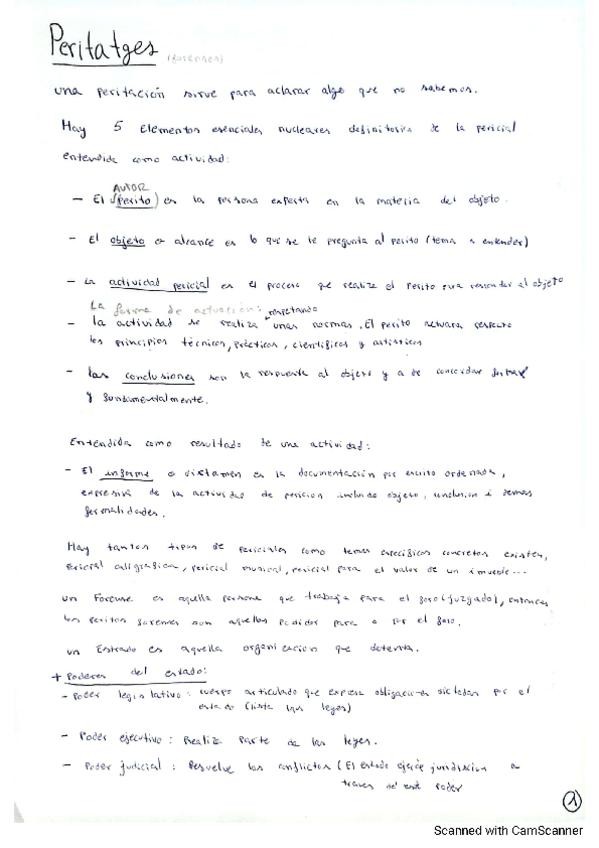 Peritatges (forenses)
una peritación sirve para aclarar algo que no sabemos.
Hay 5 Elementos esenciales nucleares definitorios de la pericial
entendida como actividad:
AUTOR
- El (perito) es la persona experta en la materia del objeto.
- El objeto o alcance es lo que se le pregunta al perito (tema a entender)
- La actividad pericial es el proceso que realiza el perito para responder al objeto
La forma de actuación: respetando
- la actividad se realiza unas normas. El perito actuara respecto
los principios técnicos, prácticos, científicos y artísticos
- las conclusiones son la respuesta al objeto y a de concordar
y fundamentalmente.
Entendida como resultado de una actividad:
- El informe o dictamen es la documentación por escrito ordenada,
expresiva de la actividad de pericion incluido objeto, i demas
formalidades.
Hay tantos tipos de periciales como temas especificos concretos existen,
Pericial caligrafica, pericial musical, pericial para el valor de un imueble...
un Forense es aquella persona que trabaja para el foro (juzgado), entonces
los peritos forenses son aquellos pedidos para o por el foro.
un Estrado es aquella organizacion que detenta.
+ Poderes del estado:
- Poder legislativo: cuerpo articulado que expresa obligaciones dictadas por el
estado (lista leyes)
- Poder ejecutivo: Realiza parte de las leyes.
- Poder judicial: Resuelve los conflictos (El estado ejerce jurisdiccion a
traves de este poder
1
Scanned with CamScanner